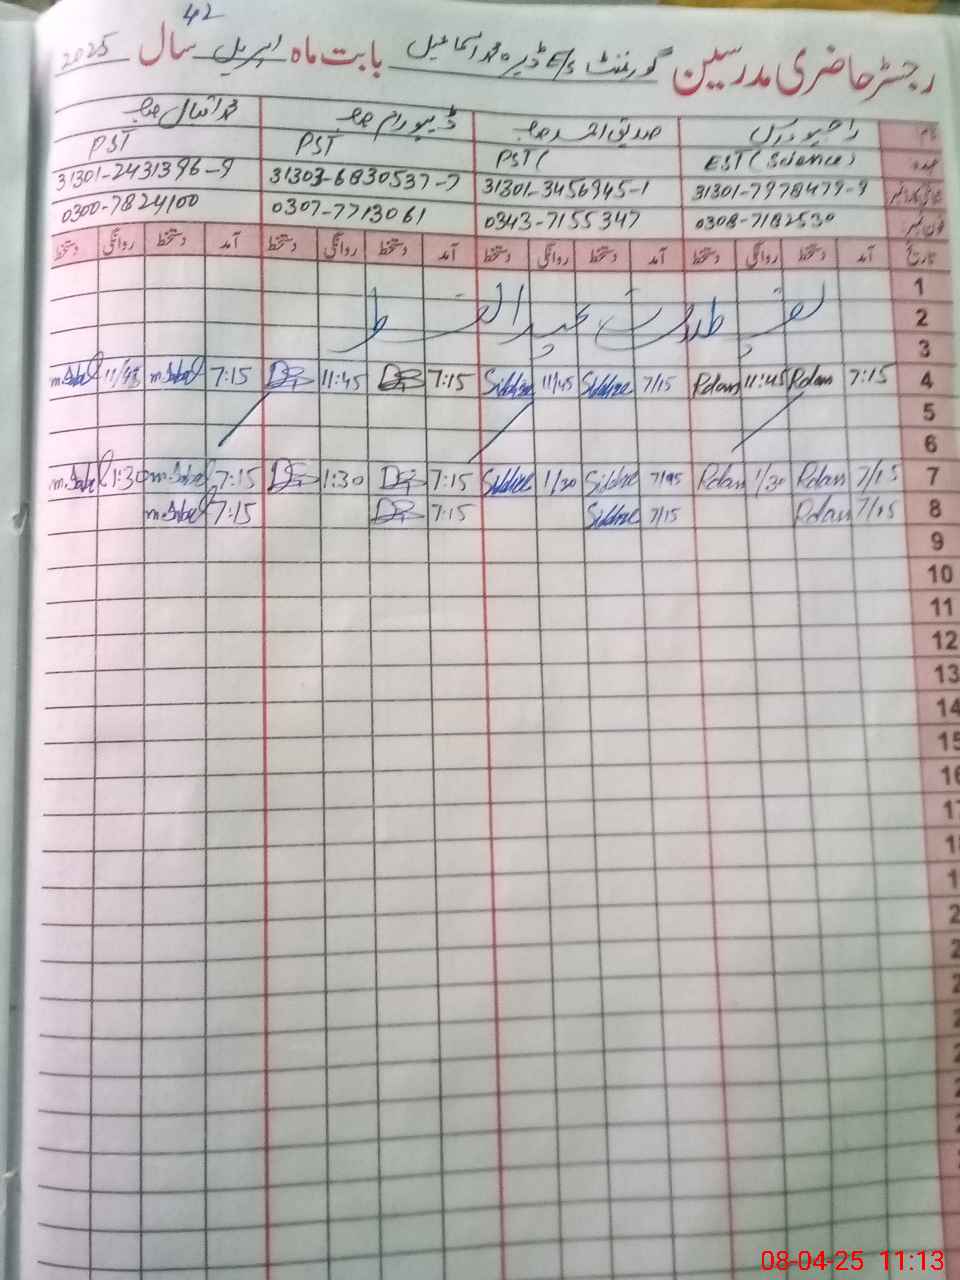 42
رجسٹر حاضری مدرسین گورنمنٹ E/S ڈیرہ محمد اسماعیل بابت ماہ اپریل سال 2025
نام صدیق احمد محمد اقبال
عہدہ EST (Science) PST( PST PST
31301-7978479-9 31301-3456945-1 31303-6830537-7 31301-2431396-9
فون نمبر 0308-7182530 0343-7155347 0307-7713061 0300-7824100
تاریخ آمد دستخط روانگی دستخط آمد دستخط روانگی دستخط آمد دستخط روانگی دستخط آمد دستخط روانگی دستخط
1
2 عید الفطر
3
4 7:15 Rdan 11:45 Rdan 7/15 Siddique 11/45 Siddique 7:15 11:45 7:15 m.Iqbal 11/45 m.Iqbal
5
6
7 7/15 Rdan 1/30 Rdan 7/15 Siddique 1/30 Siddique 7:15 1:30 7:15 m.Iqbal 1:30 m.Iqbal
8 7/15 Rdan 7/15 Siddique 7:15 7:15 m.Iqbal
9
10
11
12
13
14
15
16
08-04-25 11:13